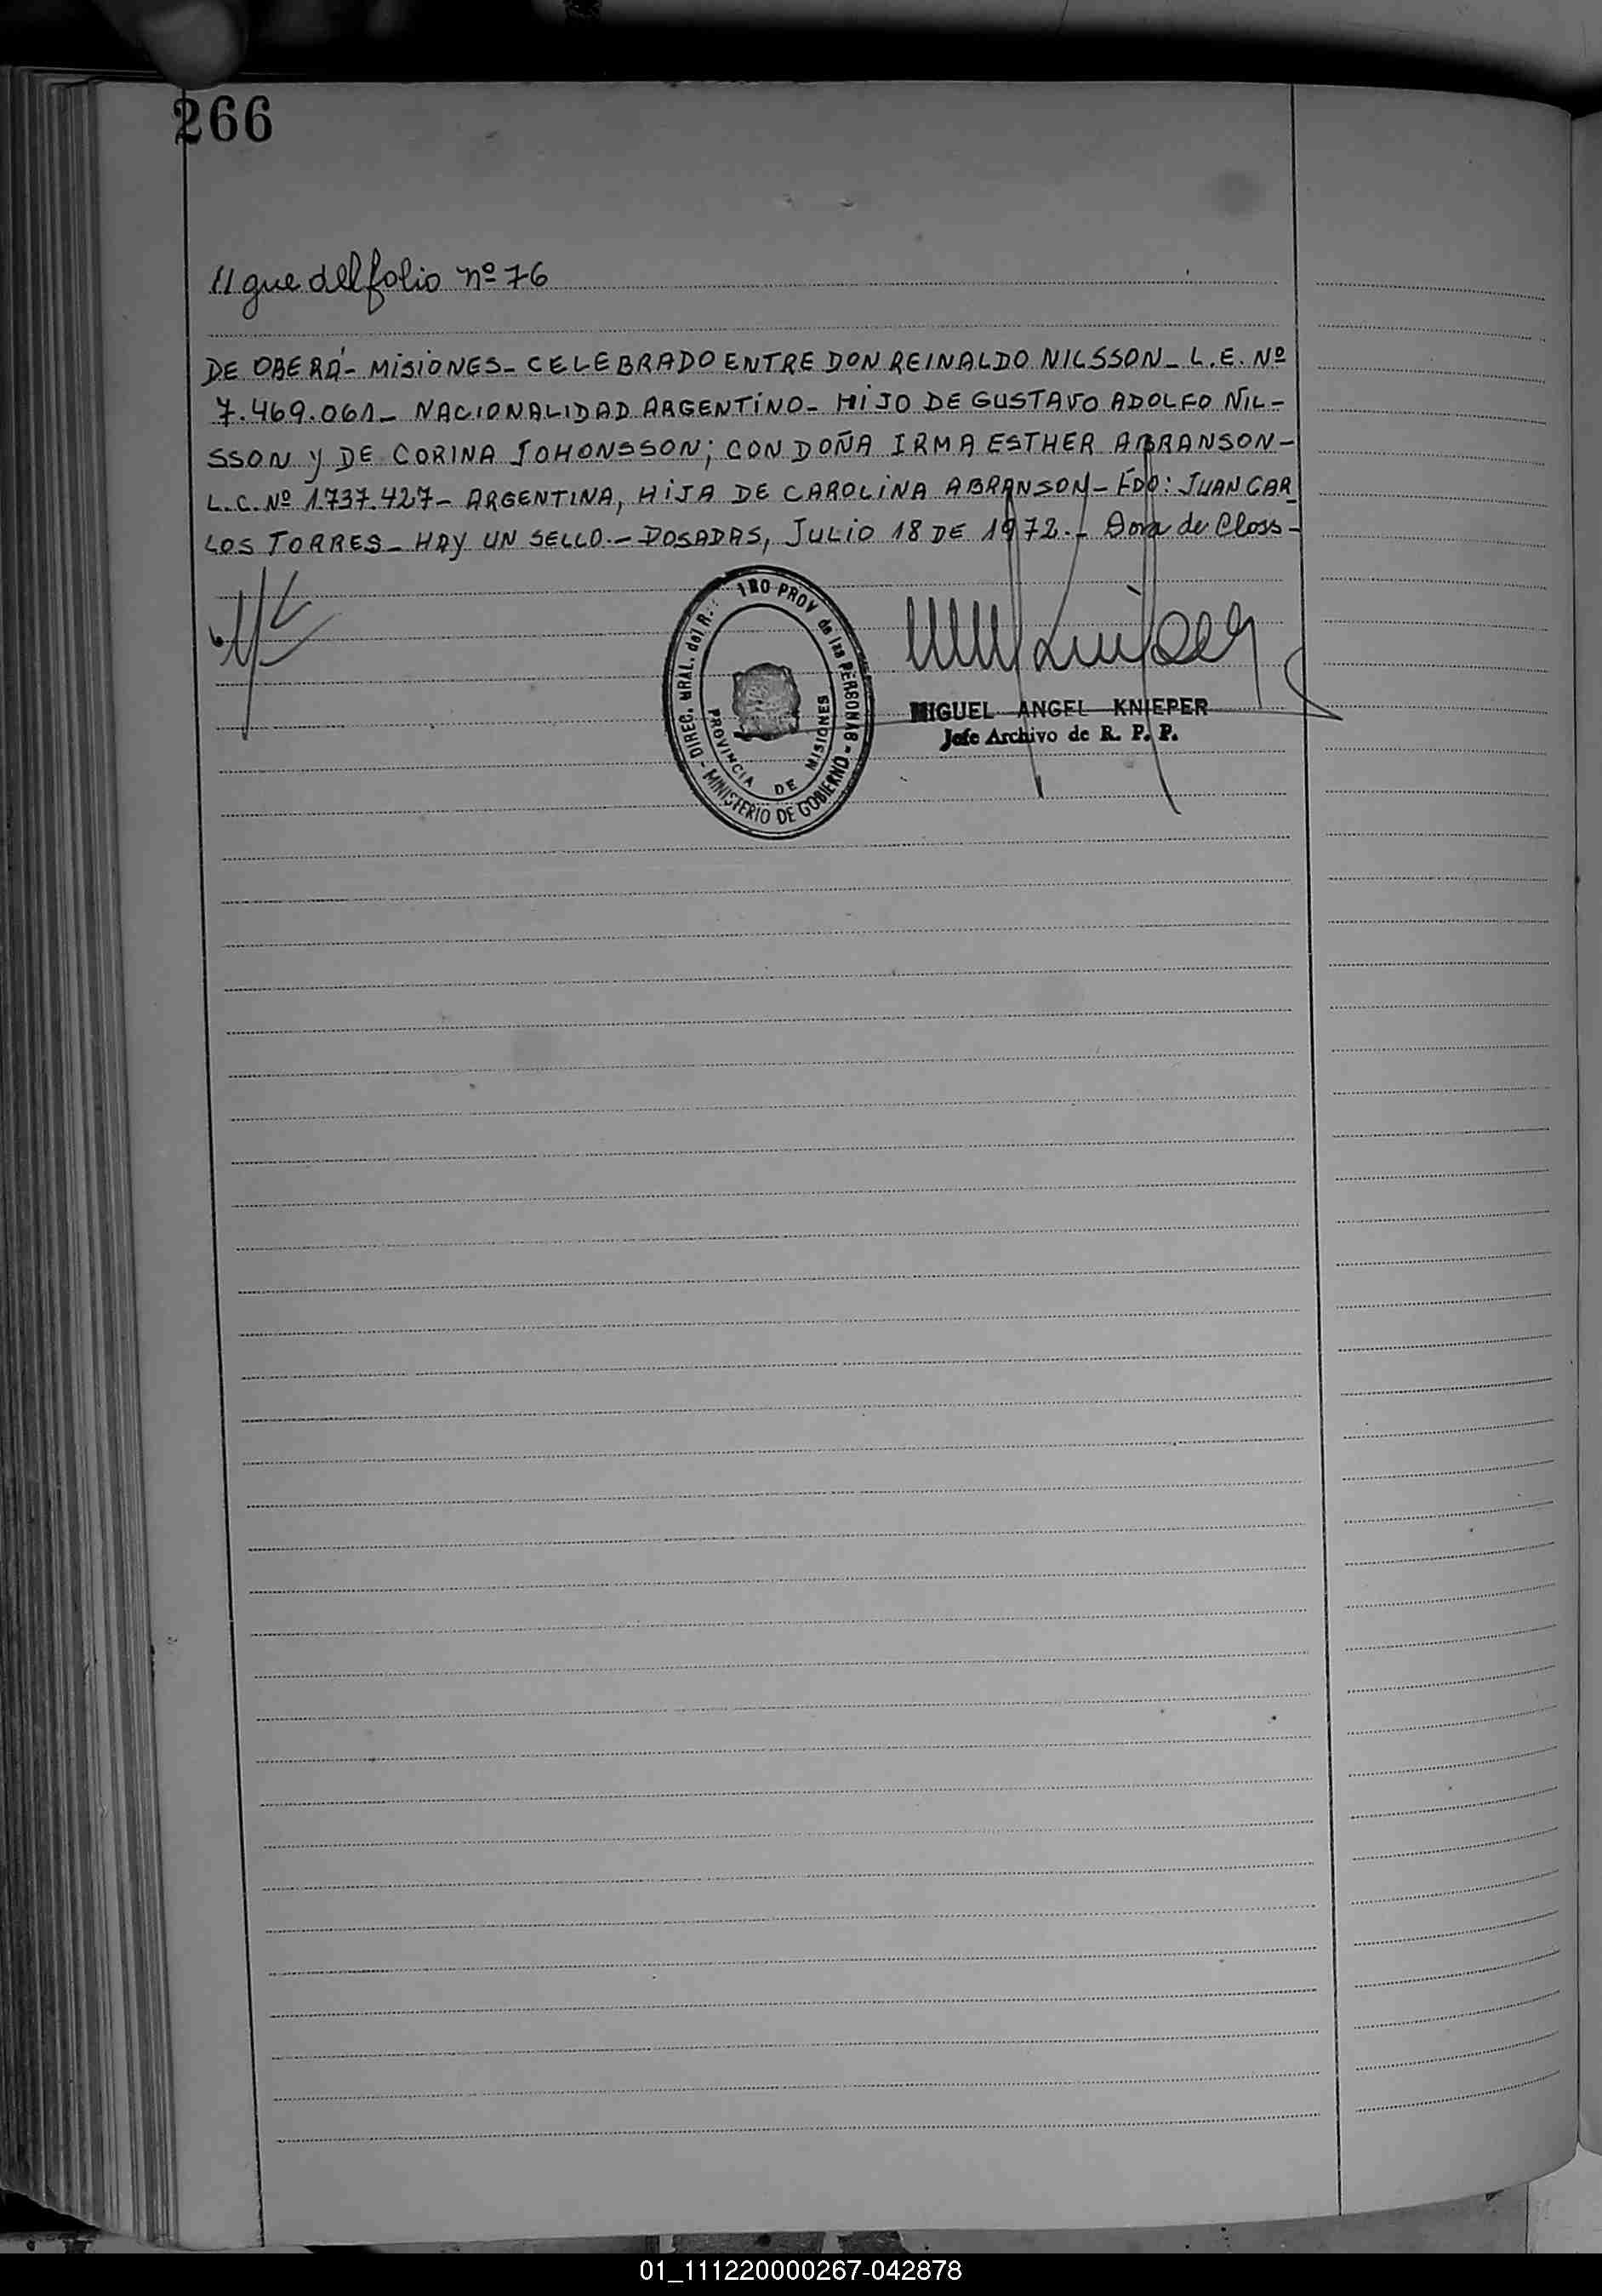 266
//gue del folio nº 76
DE OBERÁ- MISIONES- CELEBRADO ENTRE DON REINALDO NILSSON- L.E. Nº
7.469.061- NACIONALIDAD ARGENTINO- HIJO DE GUSTAVO ADOLFO NIL-
SSON Y DE CORINA JOHONSSON; CON DOÑA IRMA ESTHER ABRANSON-
L.C. Nº 1.737.427- ARGENTINA, HIJA DE CAROLINA ABRANSON- FDO: JUAN CAR-
LOS TORRES- HAY UN SELLO.- POSADAS, JULIO 18 DE 1972.- Dora de Closs-
DIREC. GRAL. del R. PROV de las PERSONAS - MINISTERIO DE GOBIERNO -
PROVINCIA DE MISIONES
MIGUEL ANGEL KNIEPER
Jefe Archivo de R. P. P.
01_111220000267-042878